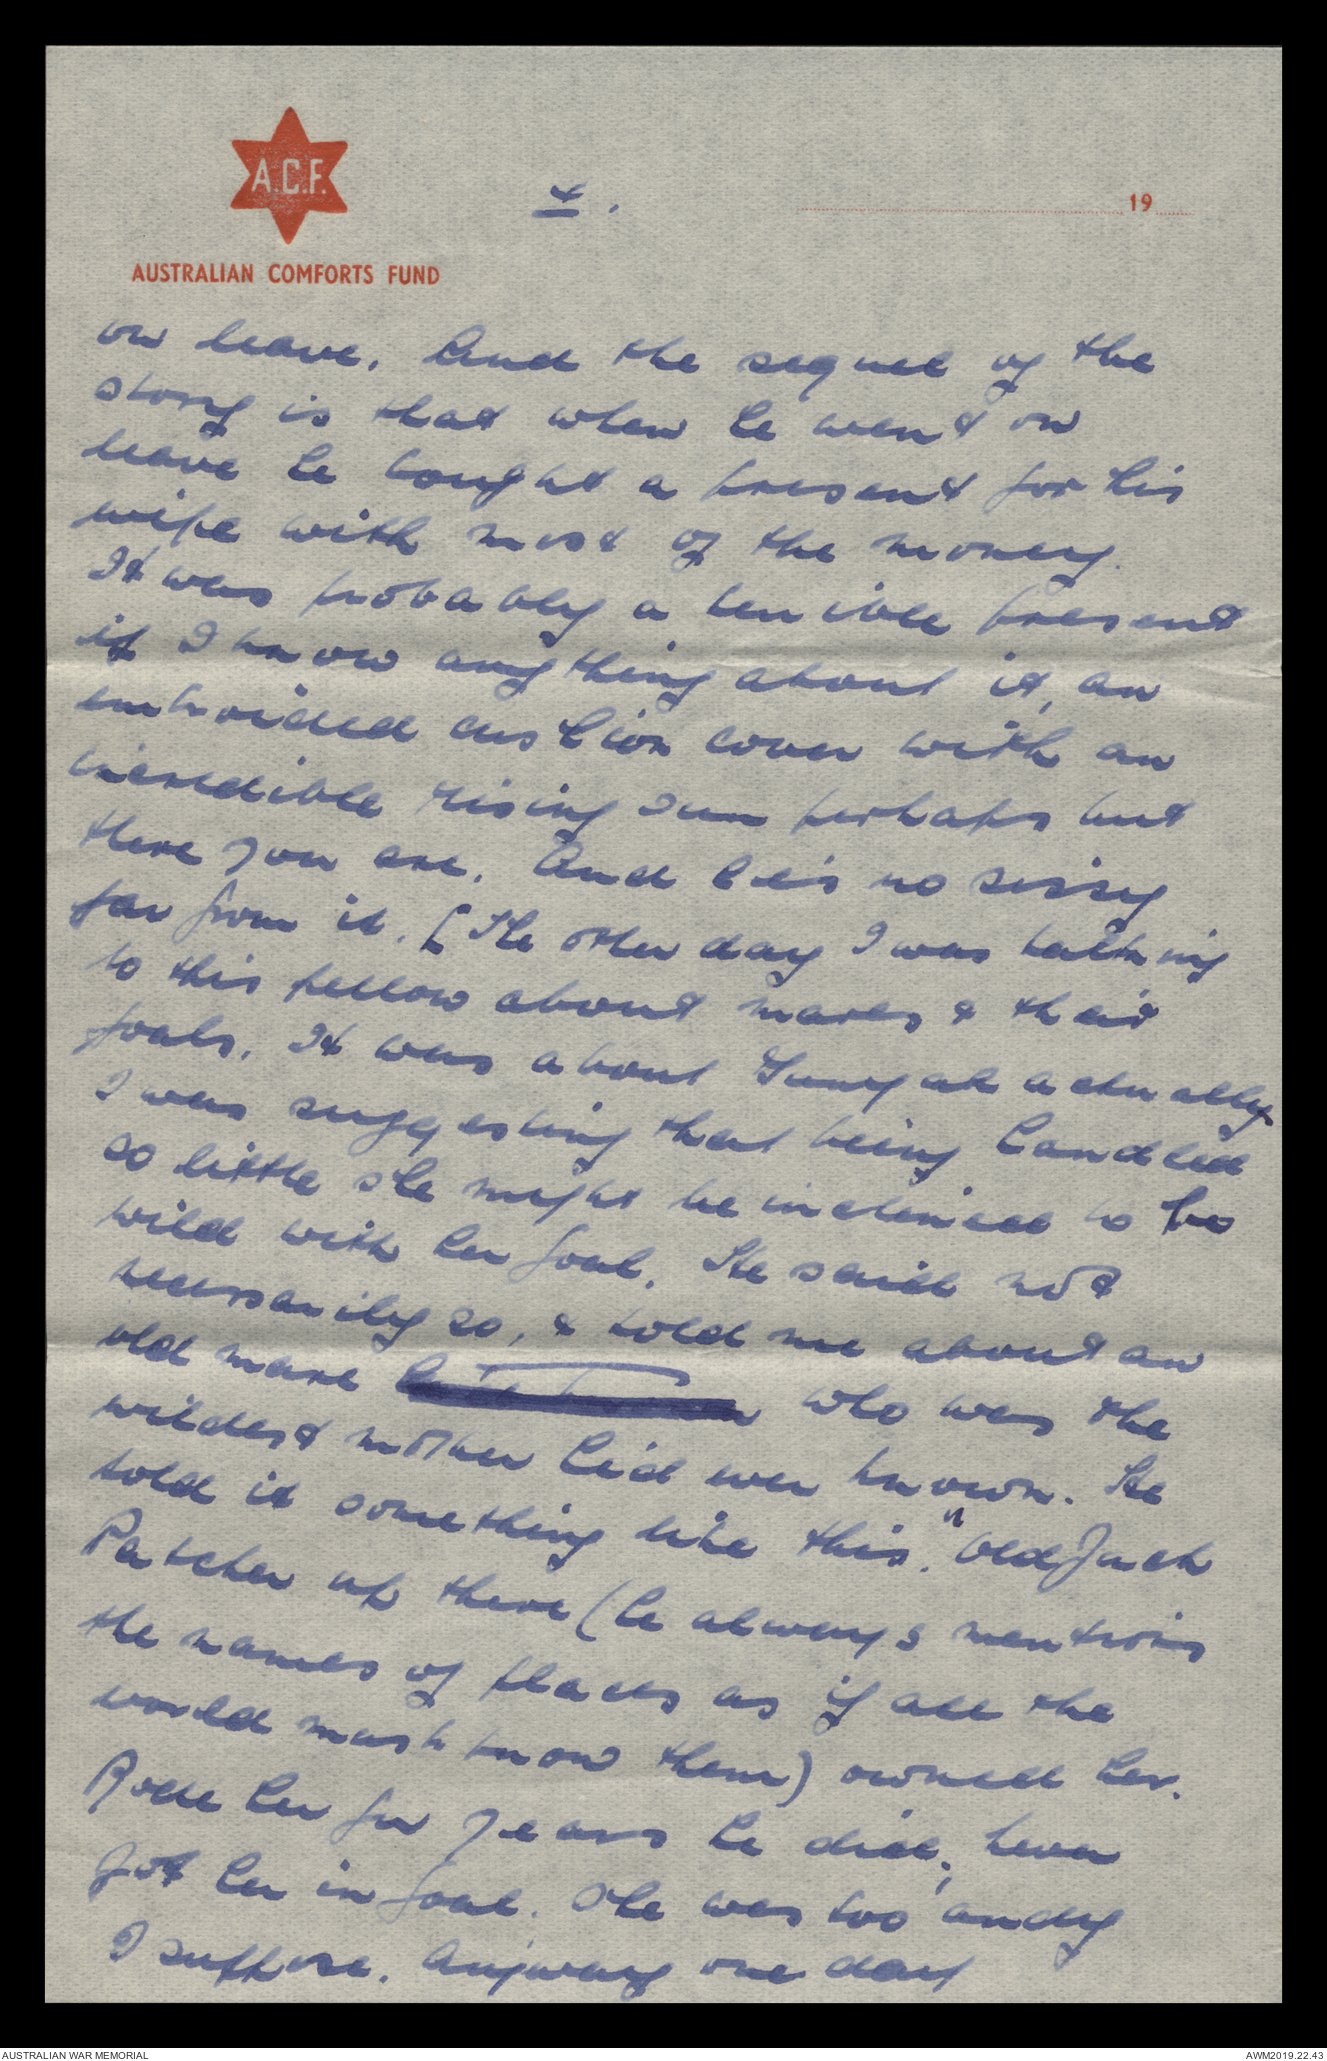 A.C.F.
4.
19
AUSTRALIAN COMFORTS FUND
on leave. And the sequel of the
story is that when he went on
leave he bought a present for his
wife with most of the money.
It was probably a terrible present
if I know anything about it, an
embroided cushion cover with an
incredible rising sun perhaps but
there you are. And he's no sissy
far from it. [The other day I was talking
to this fellow about mares & their
foals. It was about Gunyah actually
I was suggesting that being handled
so little she might be inclined to be
wild with her foal. He said not
necessarily so, & told me about an
old mare who was the
wildest mother he'd ever known. He
told it something like this. "Old Jack
Patcher up there (he always mentions
the names of places as if all the
world must know them) owned her.
Rode her for years he did, never
got her in foal. She was too 'andy
I suppose. Anyway one day
AUSTRALIAN WAR MEMORIAL
AWM2019.22.43